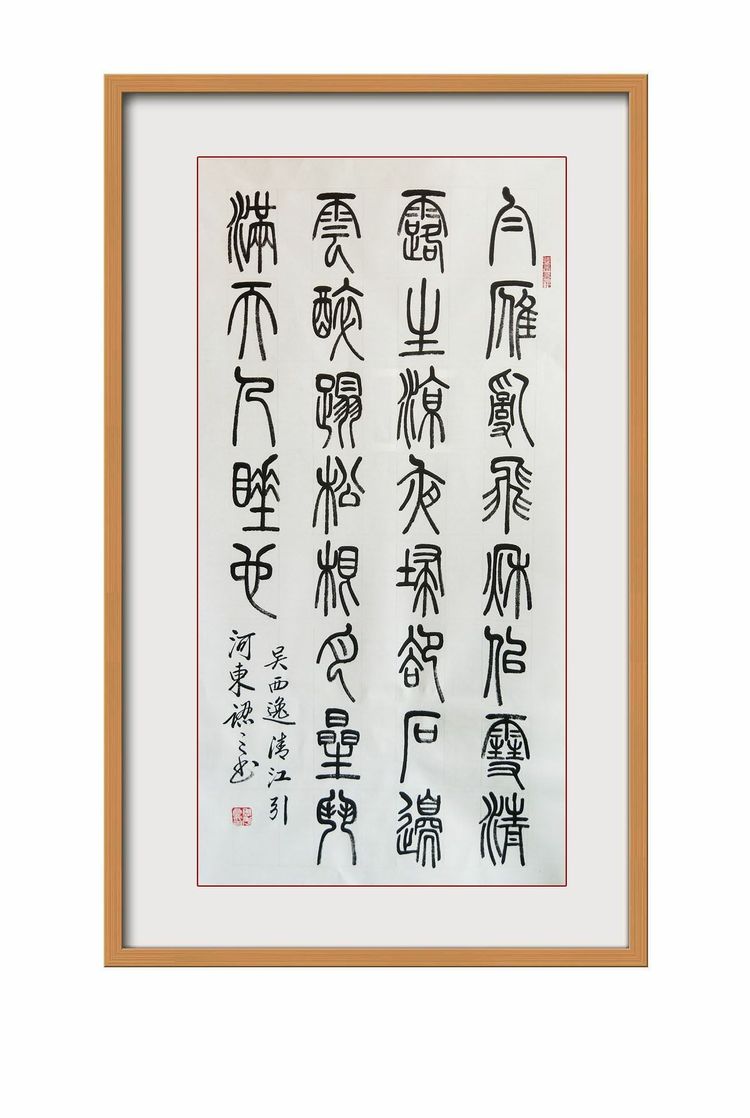 白雁亂飛秋似雪清
露生涼夜埽卻石邊
雲醉蹋松根月星斗
滿天人睡也
吴西逸清江引
河東之书